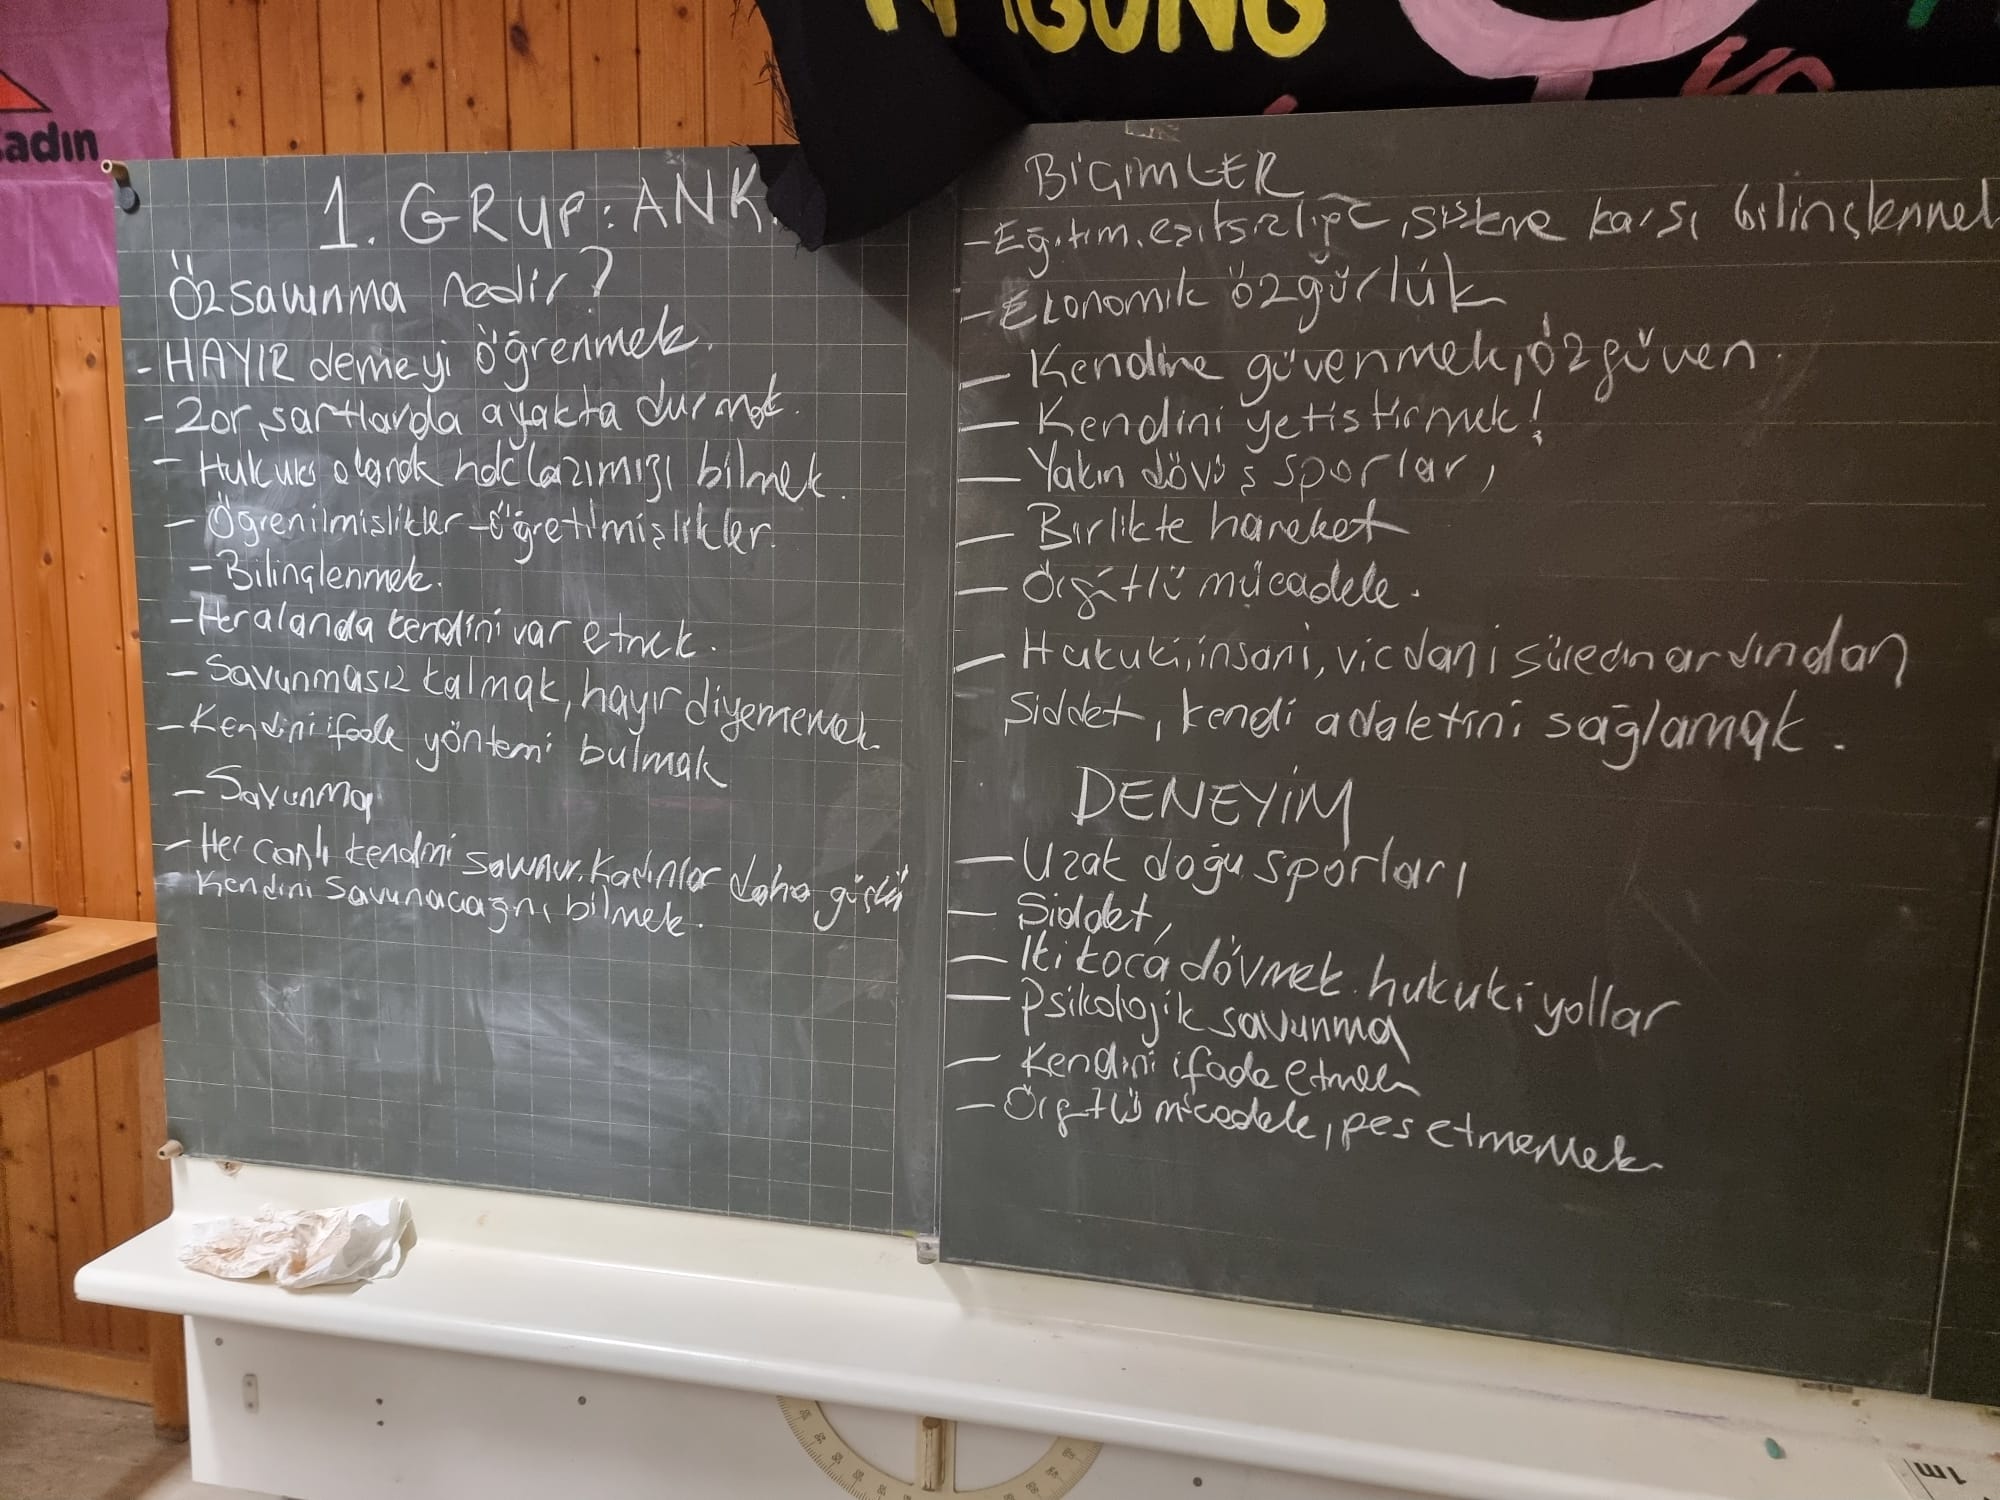 adın
1. GRUP: ANK
Özsavunma nedir?
- HAYIR demeyi öğrenmek.
- Zor şartlarda ayakta durmak.
- Hukuki olarak haklarımızı bilmek.
- Öğrenilmişlikler - öğretilmişlikler.
- Bilinçlenmek.
- Her alanda kendini var etmek.
- Savunmasız kalmak, hayır diyememek
- Kendini ifade yöntemi bulmak
- Savunma
- Her canlı kendini savunur. Kadınlar daha güçlü
Kendini savunacağını bilmek.
BİÇİMLER
- Eğitim. eşitsizliğe, sisteme karşı bilinçlenmek
- Ekonomik özgürlük
- Kendine güvenmek, özgüven.
- Kendini yetiştirmek!
- Yakın dövüş sporları
- Birlikte hareket
- Örgütlü mücadele.
- Hukuki, insani, vicdani sürecin ardından
Şiddet, kendi adaletini sağlamak.
DENEYİM
- Uzak doğu sporları
- Şiddet,
- İki koca dövmek. hukuki yollar
- Psikolojik savunma
- Kendini ifade etmek
- Örgütlü mücadele, pes etmemek
1m